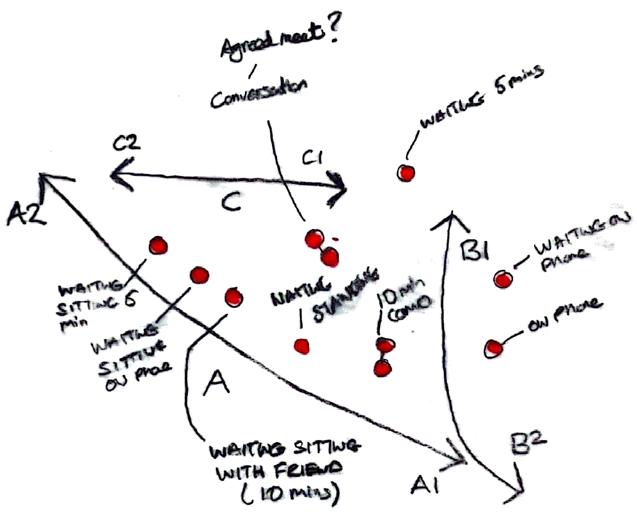 Agreed meet?
Conversation
WAITING 5 mins
C2
C1
C
A2
B1
WAITING ON
PHONE
WAITING
SITTING 5
min
WAITING
SITTING
ON PHONE
WAITING
STANDING
10 min
CONVO
ON PHONE
A
WAITING SITTING
WITH FRIEND
(10 mins)
A1
B2